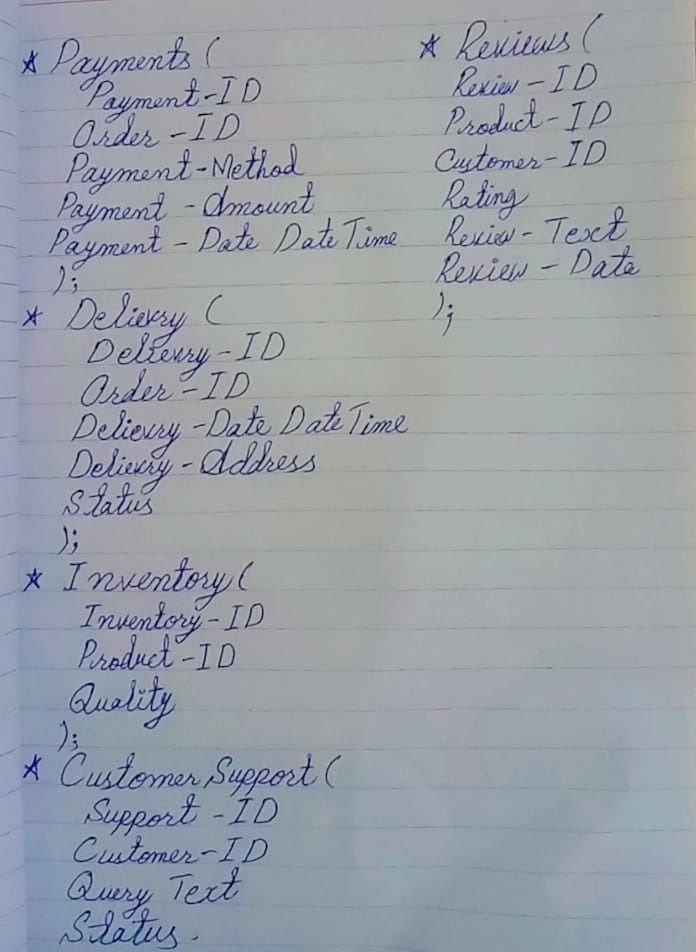 * Payments (
Payment-ID
Order-ID
Payment-Method
Payment-Amount
Payment-Date DateTime
);
* Delievry (
Delievry-ID
Order-ID
Delievry-Date DateTime
Delievry-Address
Status
);
* Inventory (
Inventory-ID
Product-ID
Quality
);
* Customer Support (
Support-ID
Customer-ID
Query Text
Status.
* Reviews (
Review-ID
Product-ID
Customer-ID
Rating
Review-Text
Review-Data
);